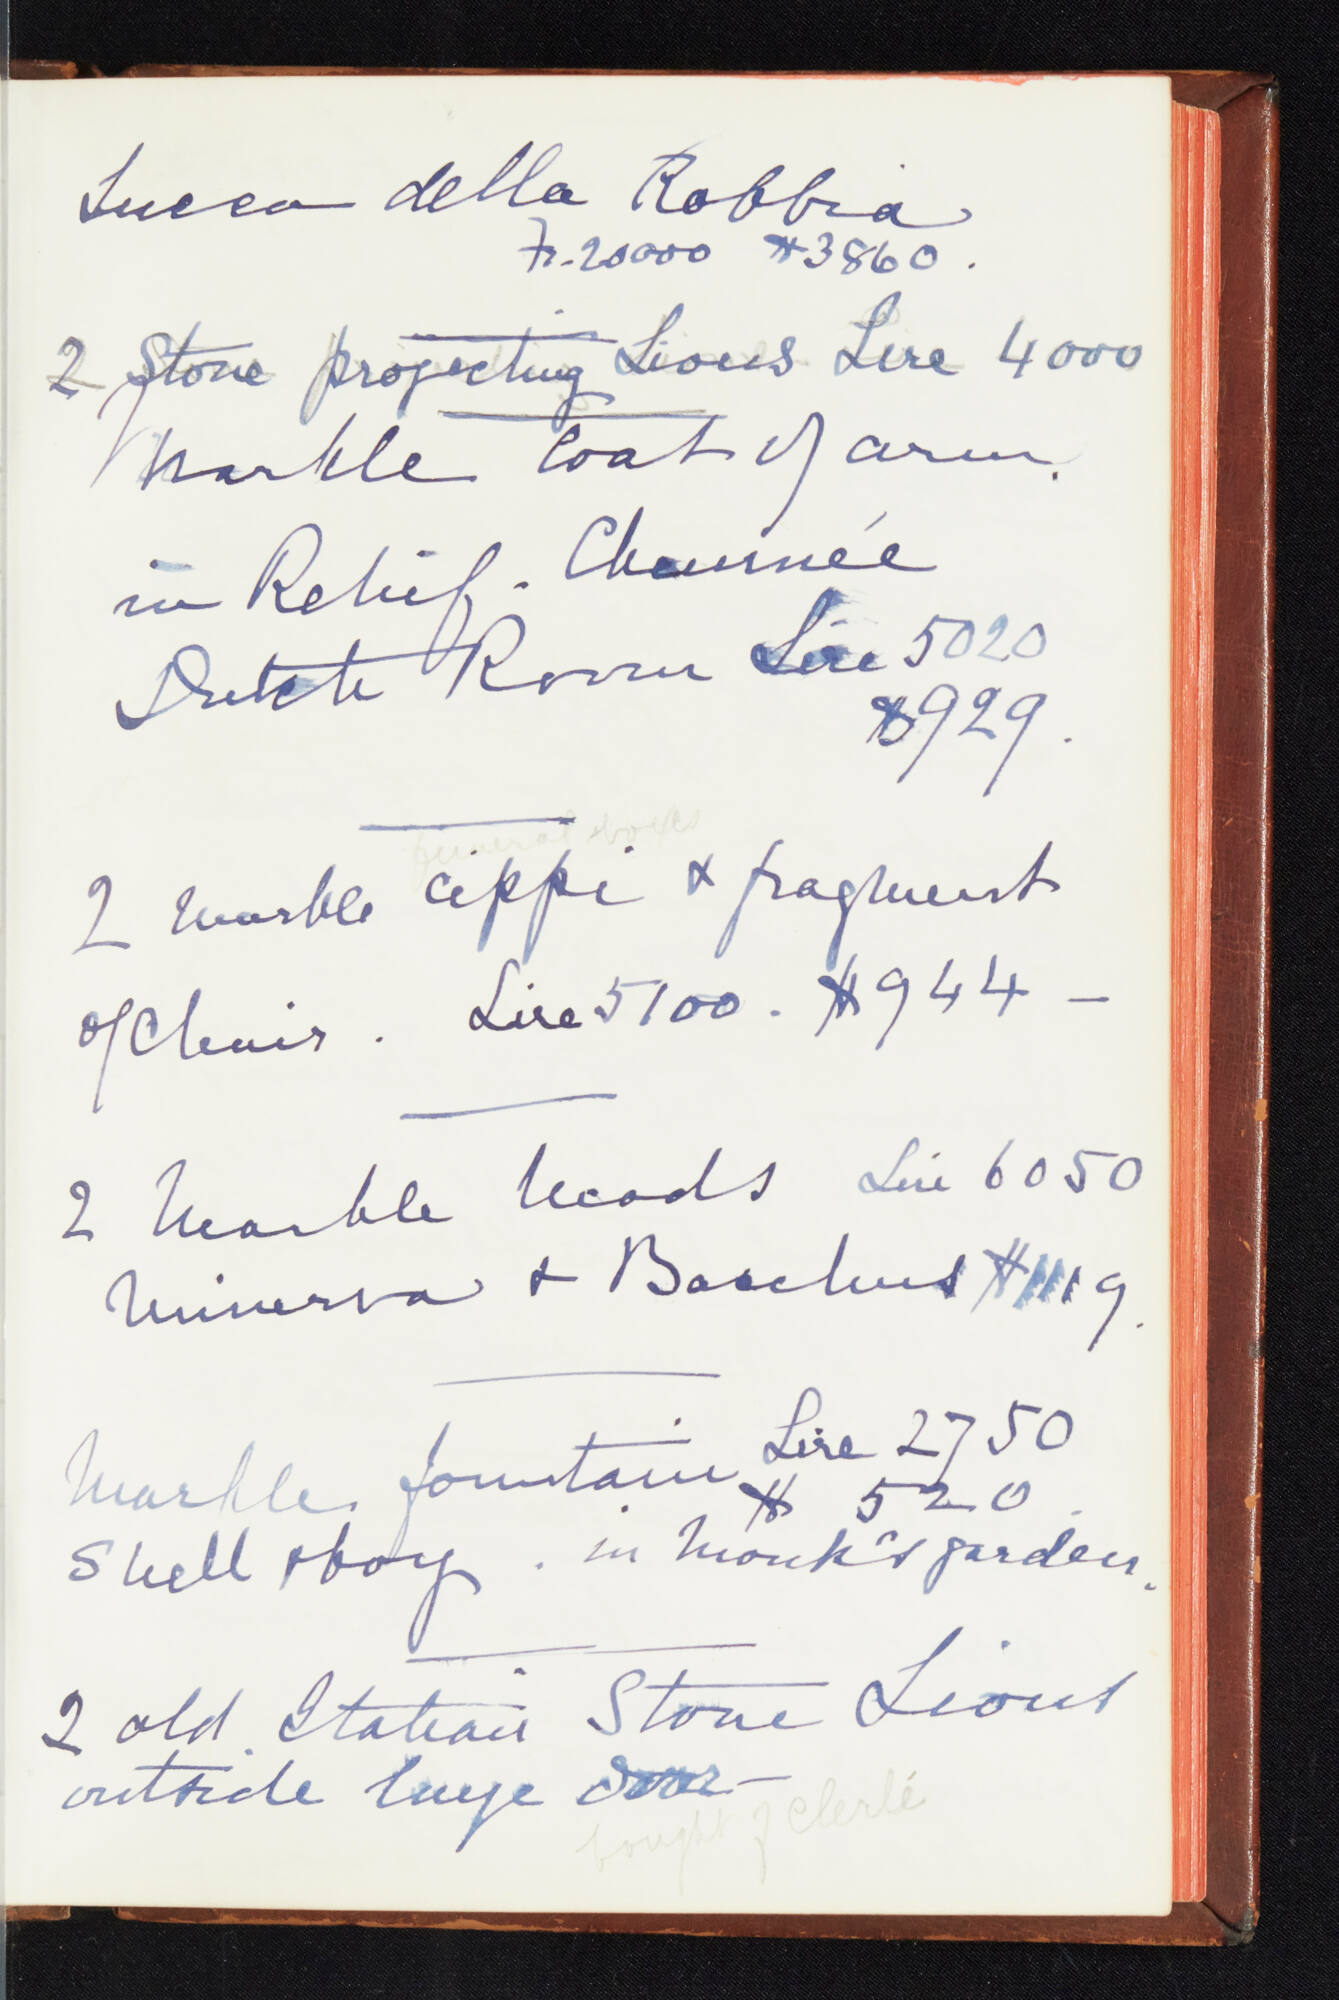 Lucca della Robbia
Fr. 20000 $3860.
2 Stone projecting Lions Lire 4000
Marble Coat of arms.
in Relief. Cheminée
Dutch Room Lire 5020
$929.
funeral boxes
2 marble cippi & fragment
of Chair. Lire 5100. $944 -
2 Marble heads Lire 6050
Minerva & Bacchus $1119.
Marble fountain Lire 2750
$ 520.
Shell & boy. in Monk's garden.
2 old Italian Stone Lions
outside large door -
bought of Clerlé